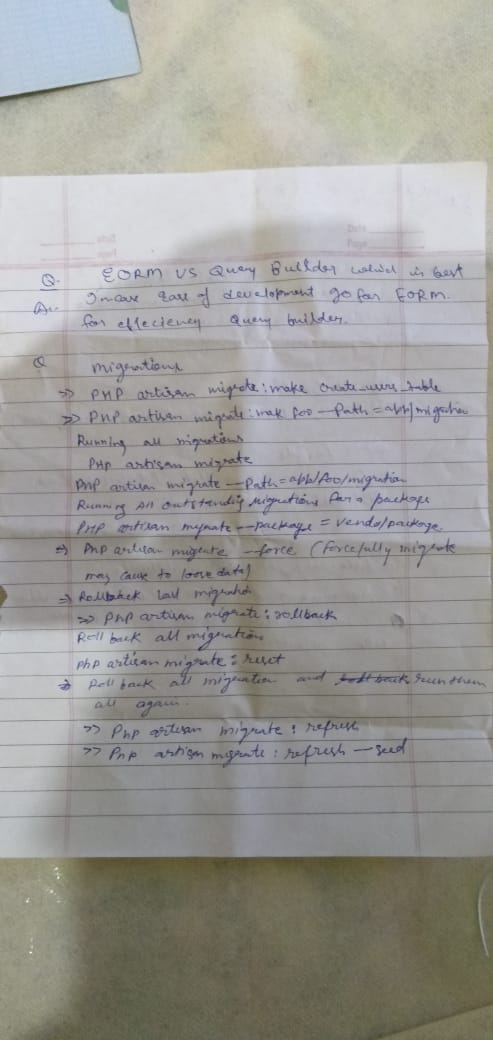 Date
Page
Q. EORM VS Query Builder which is best
An. In case ease of development go for EORM.
for effeciency Query builder.
Q migrations
>> PHP artisan migrate:make create_users_table
>> PHP artisan migrate:mak foo --Path=app/migration
Running all migrations
PHP artisan migrate
PHP artisan migrate --Path=app/foo/migration
Running All outstanding migrations for a package
PHP artisan migrate --package = vendo/package.
=> PHP artisan migrate --force (forcefully migrate
may cause to loose data)
=> Rollback last migration
>> PHP artisan migrate: rollback
Roll back all migrations
PHP artisan migrate: reset
=> Roll back all migration and run them
all again.
>> PHP artisan migrate: refresh
>> PHP artisan migrate: refresh --seed